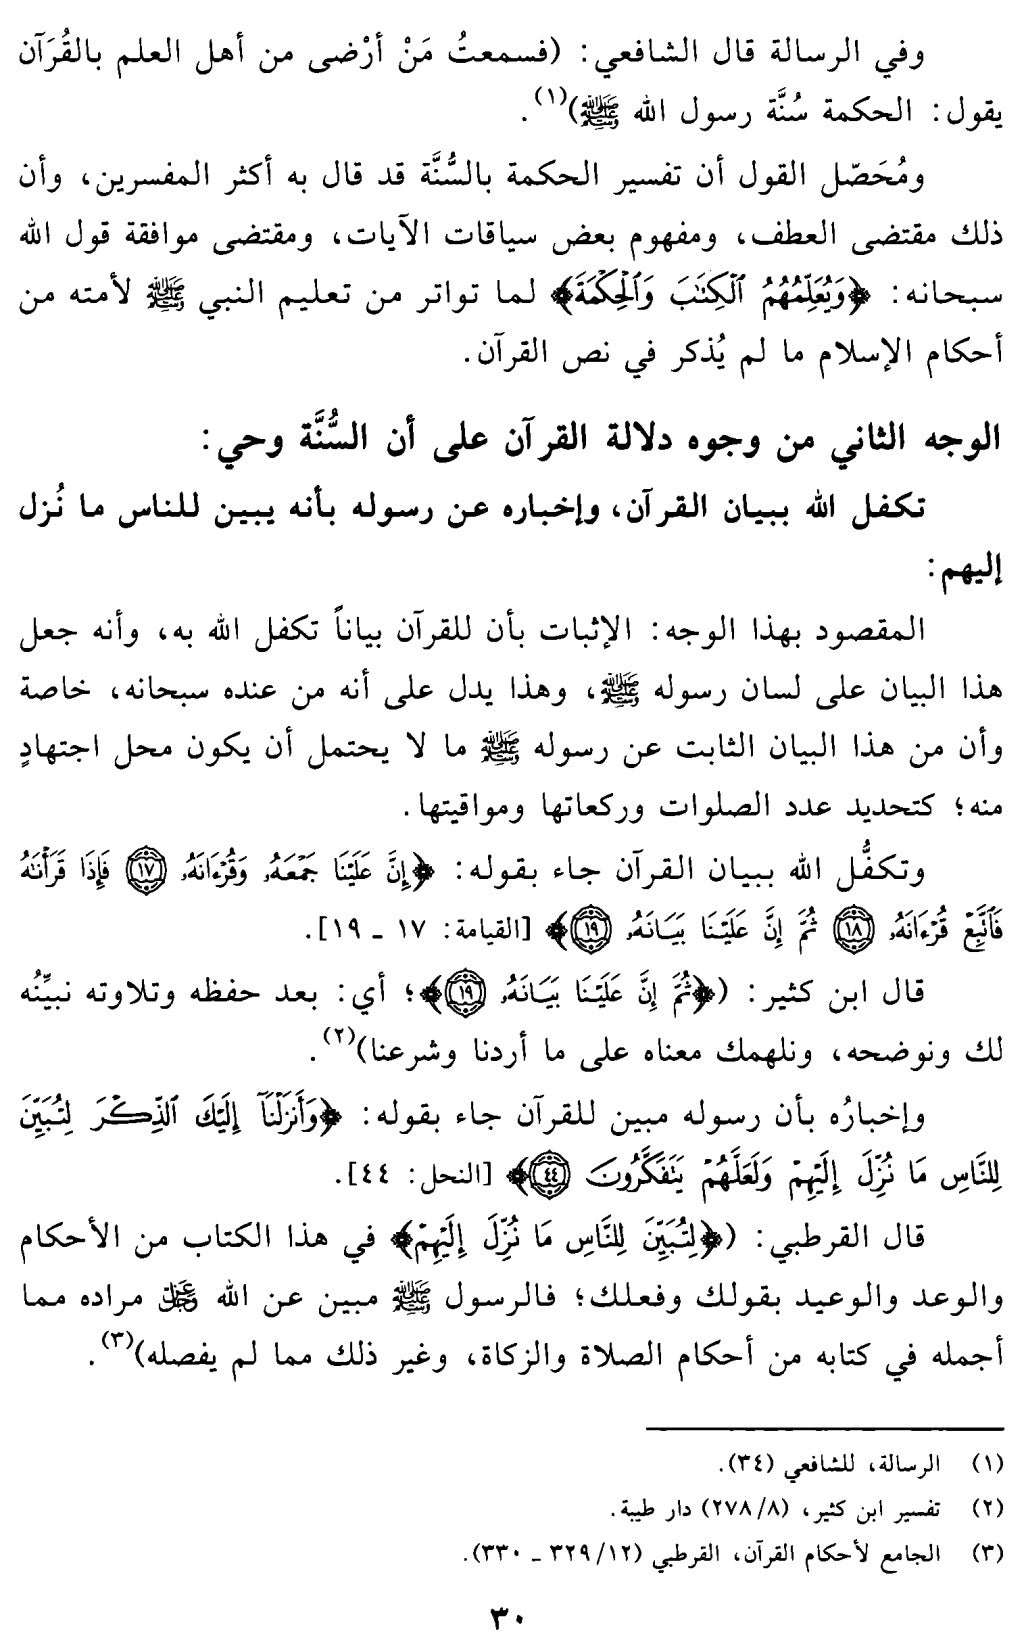 وفي الرسالة قال الشافعي: (فسمعتُ مَنْ أرْضى من أهل العلم بالقُرَآن
يقول: الحكمة سُنَّة رسول الله ﷺ)(١).
ومُحَصّل القول أن تفسير الحكمة بالسُّنَّة قد قال به أكثر المفسرين، وأن
ذلك مقتضى العطف، ومفهوم بعض سياقات الآيات، ومقتضى موافقة قول الله
سبحانه: ﴿وَيُعَلِّمُهُمُ ٱلْكِتَٰبَ وَٱلْحِكْمَةَ﴾ لما تواتر من تعليم النبي ﷺ لأمته من
أحكام الإسلام ما لم يُذكر في نص القرآن.
الوجه الثاني من وجوه دلالة القرآن على أن السُّنَّة وحي:
تكفل الله ببيان القرآن، وإخباره عن رسوله بأنه يبين للناس ما نُزل
إليهم:
المقصود بهذا الوجه: الإثبات بأن للقرآن بياناً تكفل الله به، وأنه جعل
هذا البيان على لسان رسوله ﷺ، وهذا يدل على أنه من عنده سبحانه، خاصة
وأن من هذا البيان الثابت عن رسوله ﷺ ما لا يحتمل أن يكون محل اجتهادٍ
منه؛ كتحديد عدد الصلوات وركعاتها ومواقيتها.
وتكفُّل الله ببيان القرآن جاء بقوله: ﴿إِنَّ عَلَيْنَا جَمْعَهُۥ وَقُرْءَانَهُۥ ١٧ فَإِذَا قَرَأْنَٰهُ
فَٱتَّبِعْ قُرْءَانَهُۥ ١٨ ثُمَّ إِنَّ عَلَيْنَا بَيَانَهُۥ ١٩﴾ [القيامة: ١٧ ـ ١٩].
قال ابن كثير: (﴿ثُمَّ إِنَّ عَلَيْنَا بَيَانَهُۥ ١٩﴾؛ أي: بعد حفظه وتلاوته نبيِّنُه
لك ونوضحه، ونلهمك معناه على ما أردنا وشرعنا)(٢).
وإخبارُه بأن رسوله مبين للقرآن جاء بقوله: ﴿وَأَنزَلْنَآ إِلَيْكَ ٱلذِّكْرَ لِتُبَيِّنَ
لِلنَّاسِ مَا نُزِّلَ إِلَيْهِمْ وَلَعَلَّهُمْ يَتَفَكَّرُونَ ٤٤﴾ [النحل: ٤٤].
قال القرطبي: (﴿لِتُبَيِّنَ لِلنَّاسِ مَا نُزِّلَ إِلَيْهِمْ﴾ في هذا الكتاب من الأحكام
والوعد والوعيد بقولك وفعلك؛ فالرسول ﷺ مبين عن الله عَزَّ وَجَلَّ مراده مما
أجمله في كتابه من أحكام الصلاة والزكاة، وغير ذلك مما لم يفصله)(٣).
(١) الرسالة، للشافعي (٣٤).
(٢) تفسير ابن كثير، (٨/ ٢٧٨) دار طيبة.
(٣) الجامع لأحكام القرآن، القرطبي (١٢/ ٣٢٩ ـ ٣٣٠).
٣٠